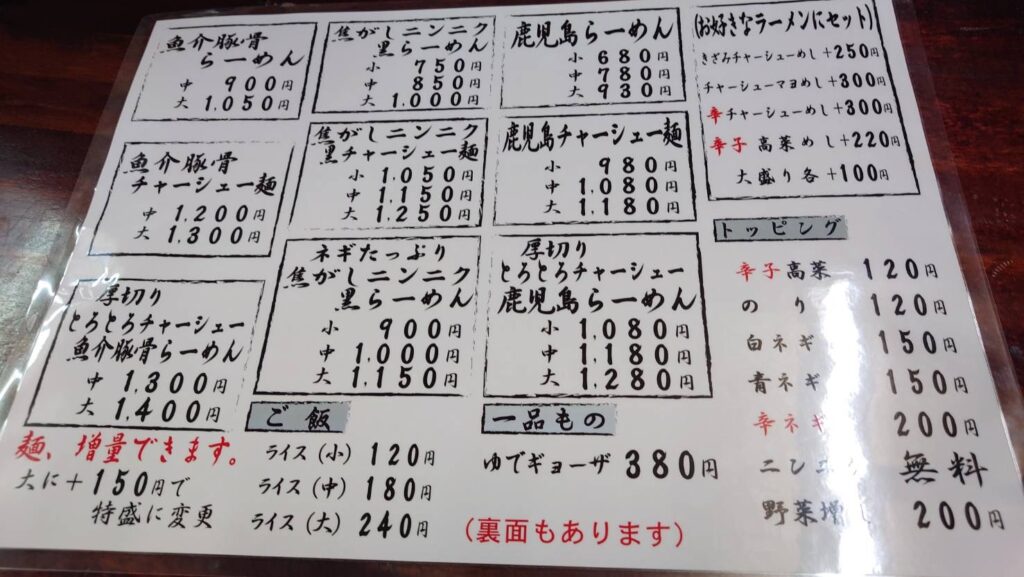 魚介豚骨
らーめん
中 900円
大 1,050円
魚介豚骨
チャーシュー麺
中 1,200円
大 1,300円
厚切り
とろとろチャーシュー
魚介豚骨らーめん
中 1,300円
大 1,400円
麺、増量できます。
大に+150円で
特盛に変更
焦がしニンニク
黒らーめん
小 750円
中 850円
大 1,000円
焦がしニンニク
黒チャーシュー麺
小 1,050円
中 1,150円
大 1,250円
ネギたっぷり
焦がしニンニク
黒らーめん
小 900円
中 1,000円
大 1,150円
ご飯
ライス(小) 120円
ライス(中) 180円
ライス(大) 240円
鹿児島らーめん
小 680円
中 780円
大 930円
鹿児島チャーシュー麺
小 980円
中 1,080円
大 1,180円
厚切り
とろとろチャーシュー
鹿児島らーめん
小 1,080円
中 1,180円
大 1,280円
一品もの
ゆでギョーザ 380円
(裏面もあります)
(お好きなラーメンにセット)
きざみチャーシューめし+250円
チャーシューマヨめし+300円
辛チャーシューめし+300円
辛子高菜めし+220円
大盛り各+100円
トッピング
辛子高菜 120円
のり 120円
白ネギ 150円
青ネギ 150円
辛ネギ 200円
無料
野菜増し 200円